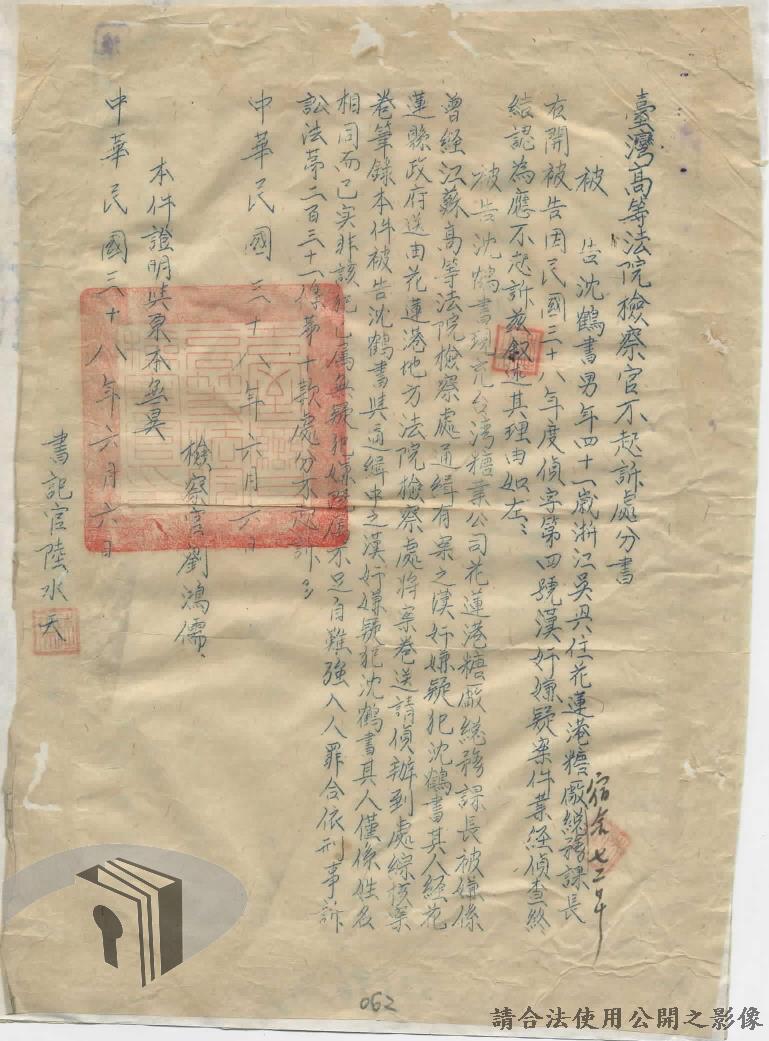 臺灣高等法院檢察官不起訴處分書
被告沈鶴書男年四十一歲浙江吳興住花蓮港糖廠總務課長
宿舍七二号
右開被告因民國三十八年度偵字第四號漢奸嫌疑案件業經偵查終
結認為應不起訴茲叙述其理由如左：
被告沈鶴書現充台湾糖業公司花蓮港糖廠總務課長被嫌係
曾經江蘇高等法院檢察處通緝有案之漢奸嫌疑犯沈鶴書其人經花
蓮縣政府送由花蓮港地方法院檢察處將案卷送請偵辦到處綜核案
卷筆錄本件被告沈鶴書與通緝中之漢奸嫌疑犯沈鶴書其人僅係姓名
相同而已实非該犯已属無疑犯嫌既屬不足自難強入人罪合依刑事訴
訟法第二百三十一條第十款處分不起訴
中華民國三十八年六月六日
檢察官劉鴻儒
本件證明與原本無異
中華民國三十八年六月六日
書記官陸水天
062
請合法使用公開之影像